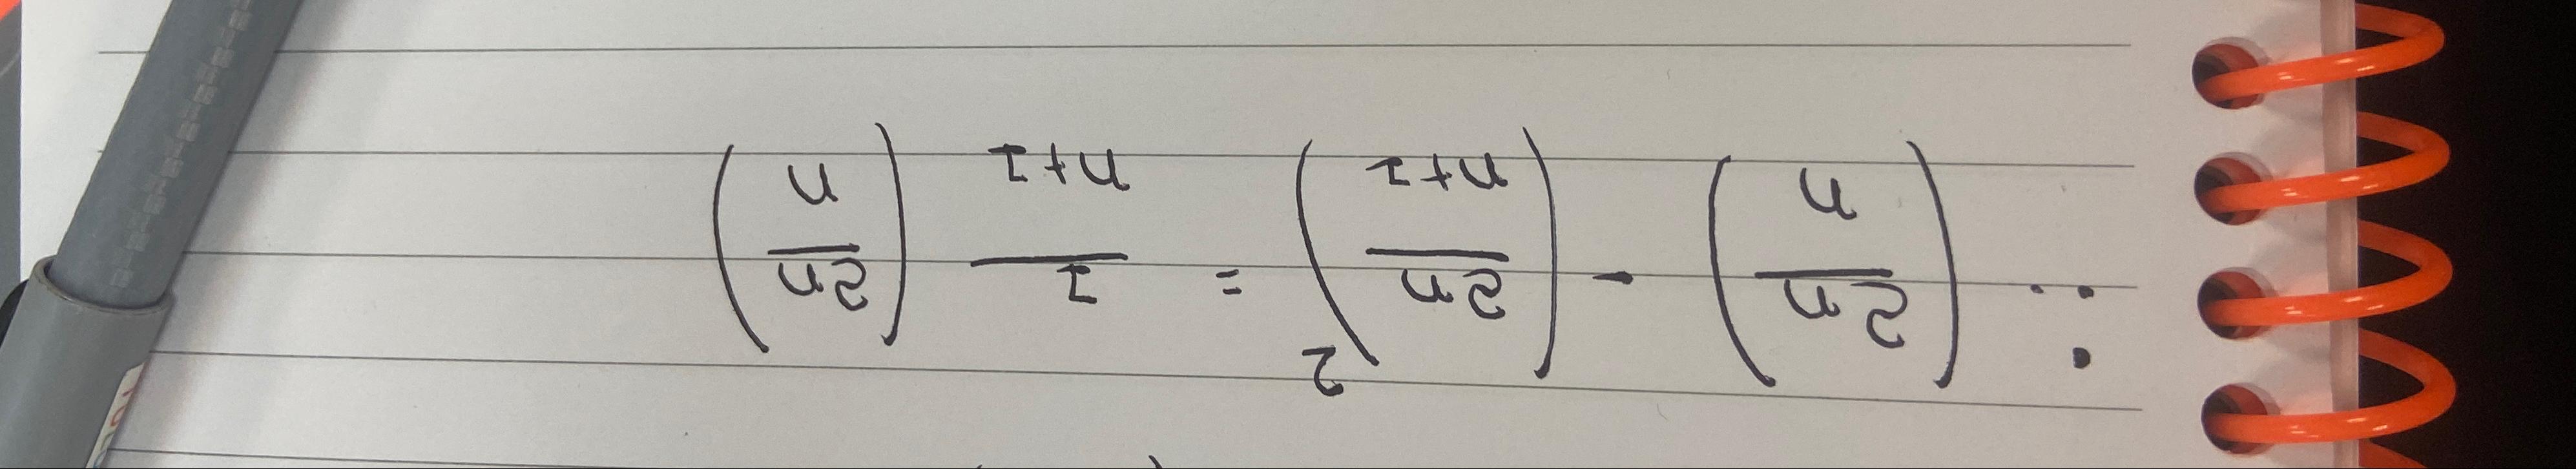 ∴ (2n/n) - (2n/n+1)² = 1/n+1 (2n/n)